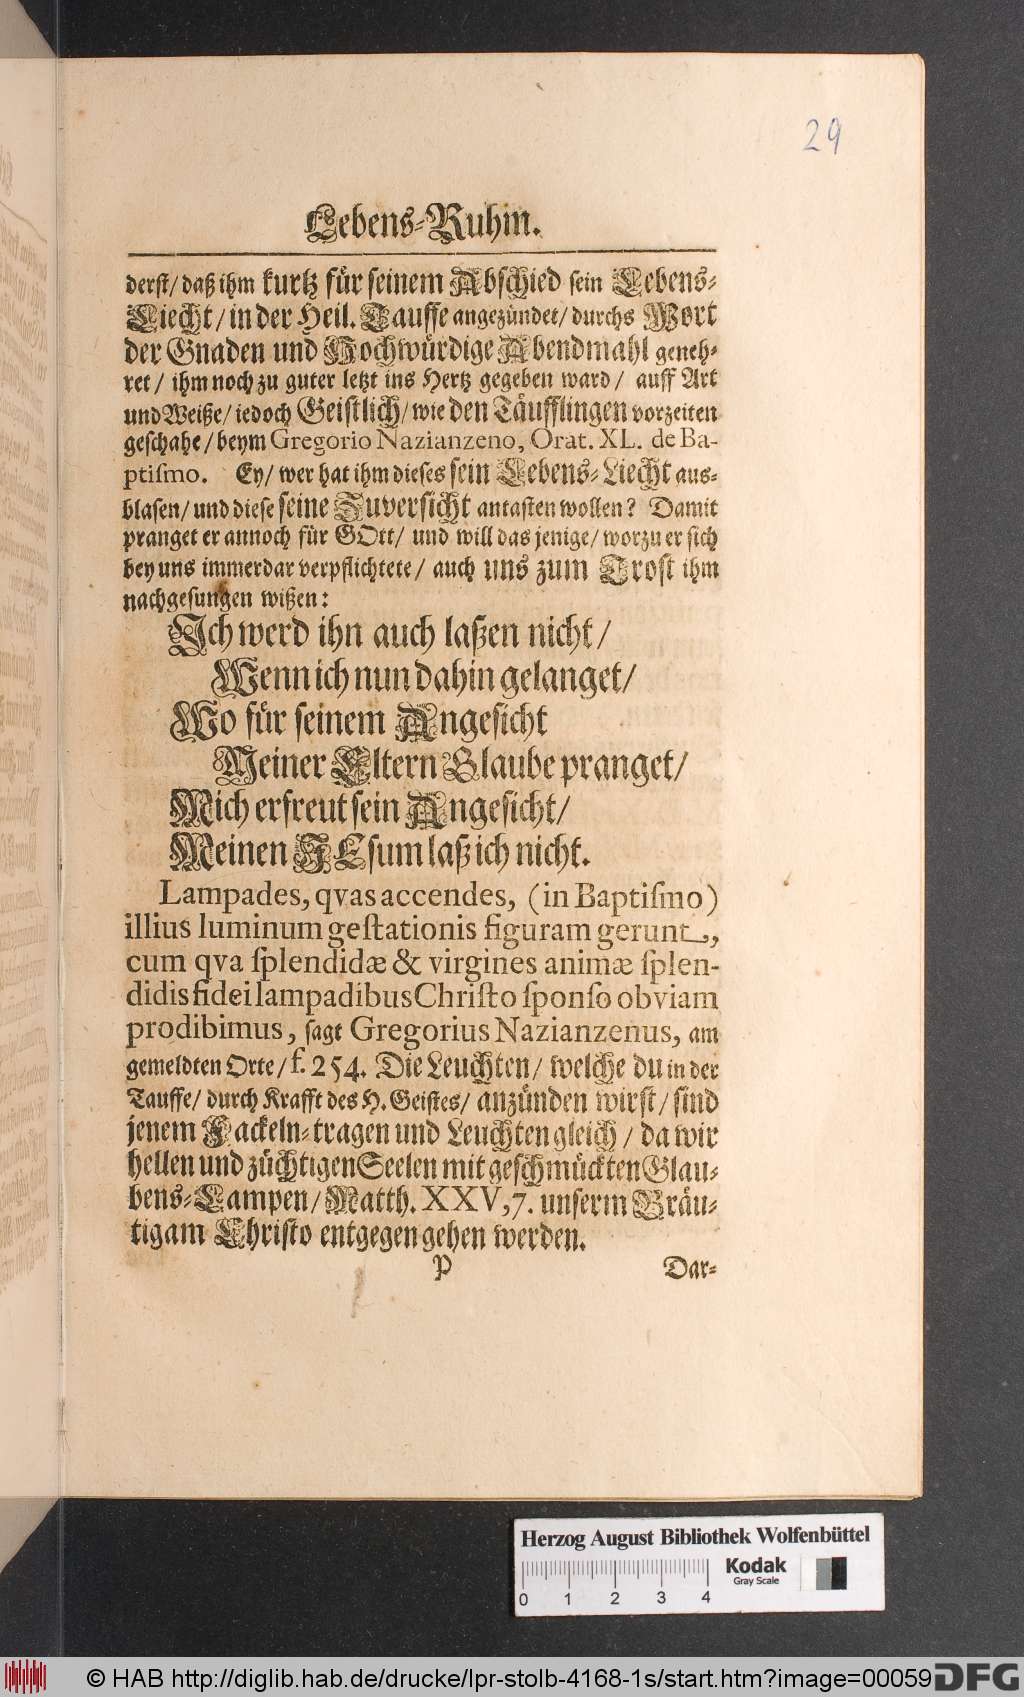 29
Lebens-Ruhm.
derst/ daß ihm kurtz für seinem Abschied sein Lebens-
Liecht/ in der Heil. Tauffe angezündet/ durchs Wort
der Gnaden und Hochwürdige Abendmahl geneh-
ret/ ihm noch zu guter letzt ins Hertz gegeben ward/ auff Art
und Weiße/ iedoch Geistlich/ wie den Täufflingen vorzeiten
geschahe/ beym Gregorio Nazianzeno, Orat. XL. de Ba-
ptiſmo. Ey/ wer hat ihm dieses sein Lebens-Liecht aus-
blasen/ und diese seine Zuversicht antasten wollen? Damit
pranget er annoch für GOtt/ und will das jenige/ worzu er sich
bey uns immerdar verpflichtete/ auch uns zum Trost ihm
nachgesungen wißen:
Ich werd ihn auch laßen nicht/
Wenn ich nun dahin gelanget/
Wo für seinem Angesicht
Meiner Eltern Glaube pranget/
Mich erfreut sein Angesicht/
Meinen JEsum laß ich nicht.
Lampades, qvas accendes, (in Baptiſmo)
illius luminum geſtationis figuram gerunt,
cum qva ſplendidæ & virgines animæ ſplen-
didis fidei lampadibus Chriſto ſponſo obviam
prodibimus, sagt Gregorius Nazianzenus, am
gemeldten Orte/ f. 254. Die Leuchten/ welche du in der
Tauffe/ durch Krafft des H. Geistes/ anzünden wirst/ sind
jenem Fackeln-tragen und Leuchten gleich/ da wir
hellen und züchtigen Seelen mit geschmückten Glau-
bens-Lampen/ Matth. XXV, 7. unserm Bräu-
tigam Christo entgegen gehen werden.
P Dar-
Herzog August Bibliothek Wolfenbüttel
Kodak
Gray Scale
0 1 2 3 4
© HAB http://diglib.hab.de/drucke/lpr-stolb-4168-1s/start.htm?image=00059
DFG